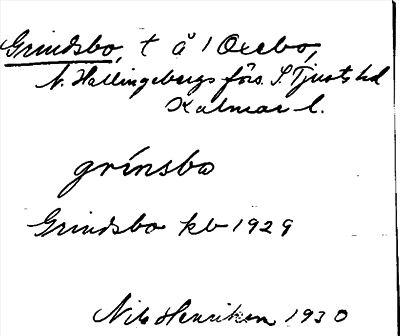 Grindsbo, t å 1 Oxebo,
N. Hallingebergs förs. S. Tjusts hd
Kalmar l.
grínsbo
Grindsbo kb 1929
Nils Henrikson 1930